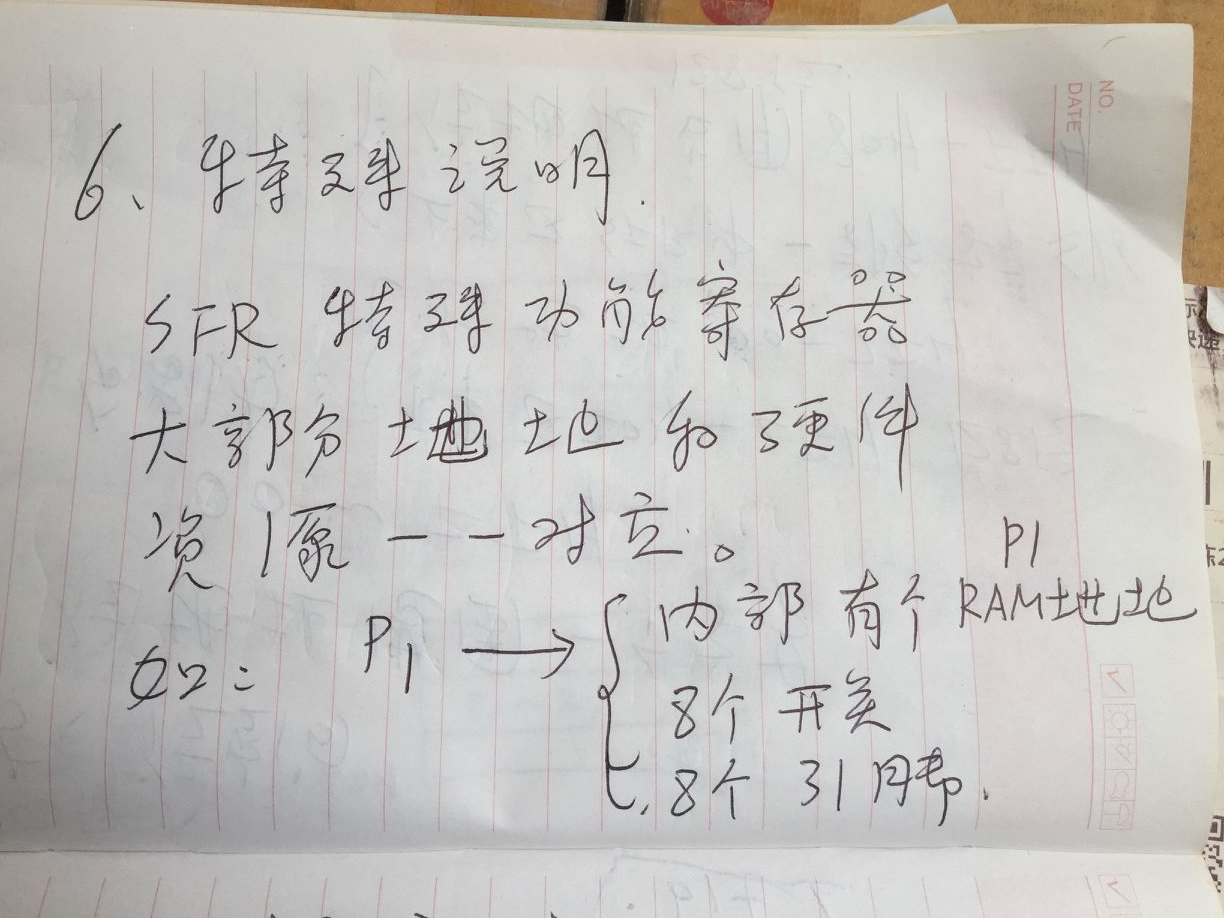 NO.
DATE
6、特殊说明.
SFR 特殊功能寄存器
大部分地地和硬件
资源一一对应。
P1
如: P1 → { 内部有个RAM地地
8个开关
8个引脚.